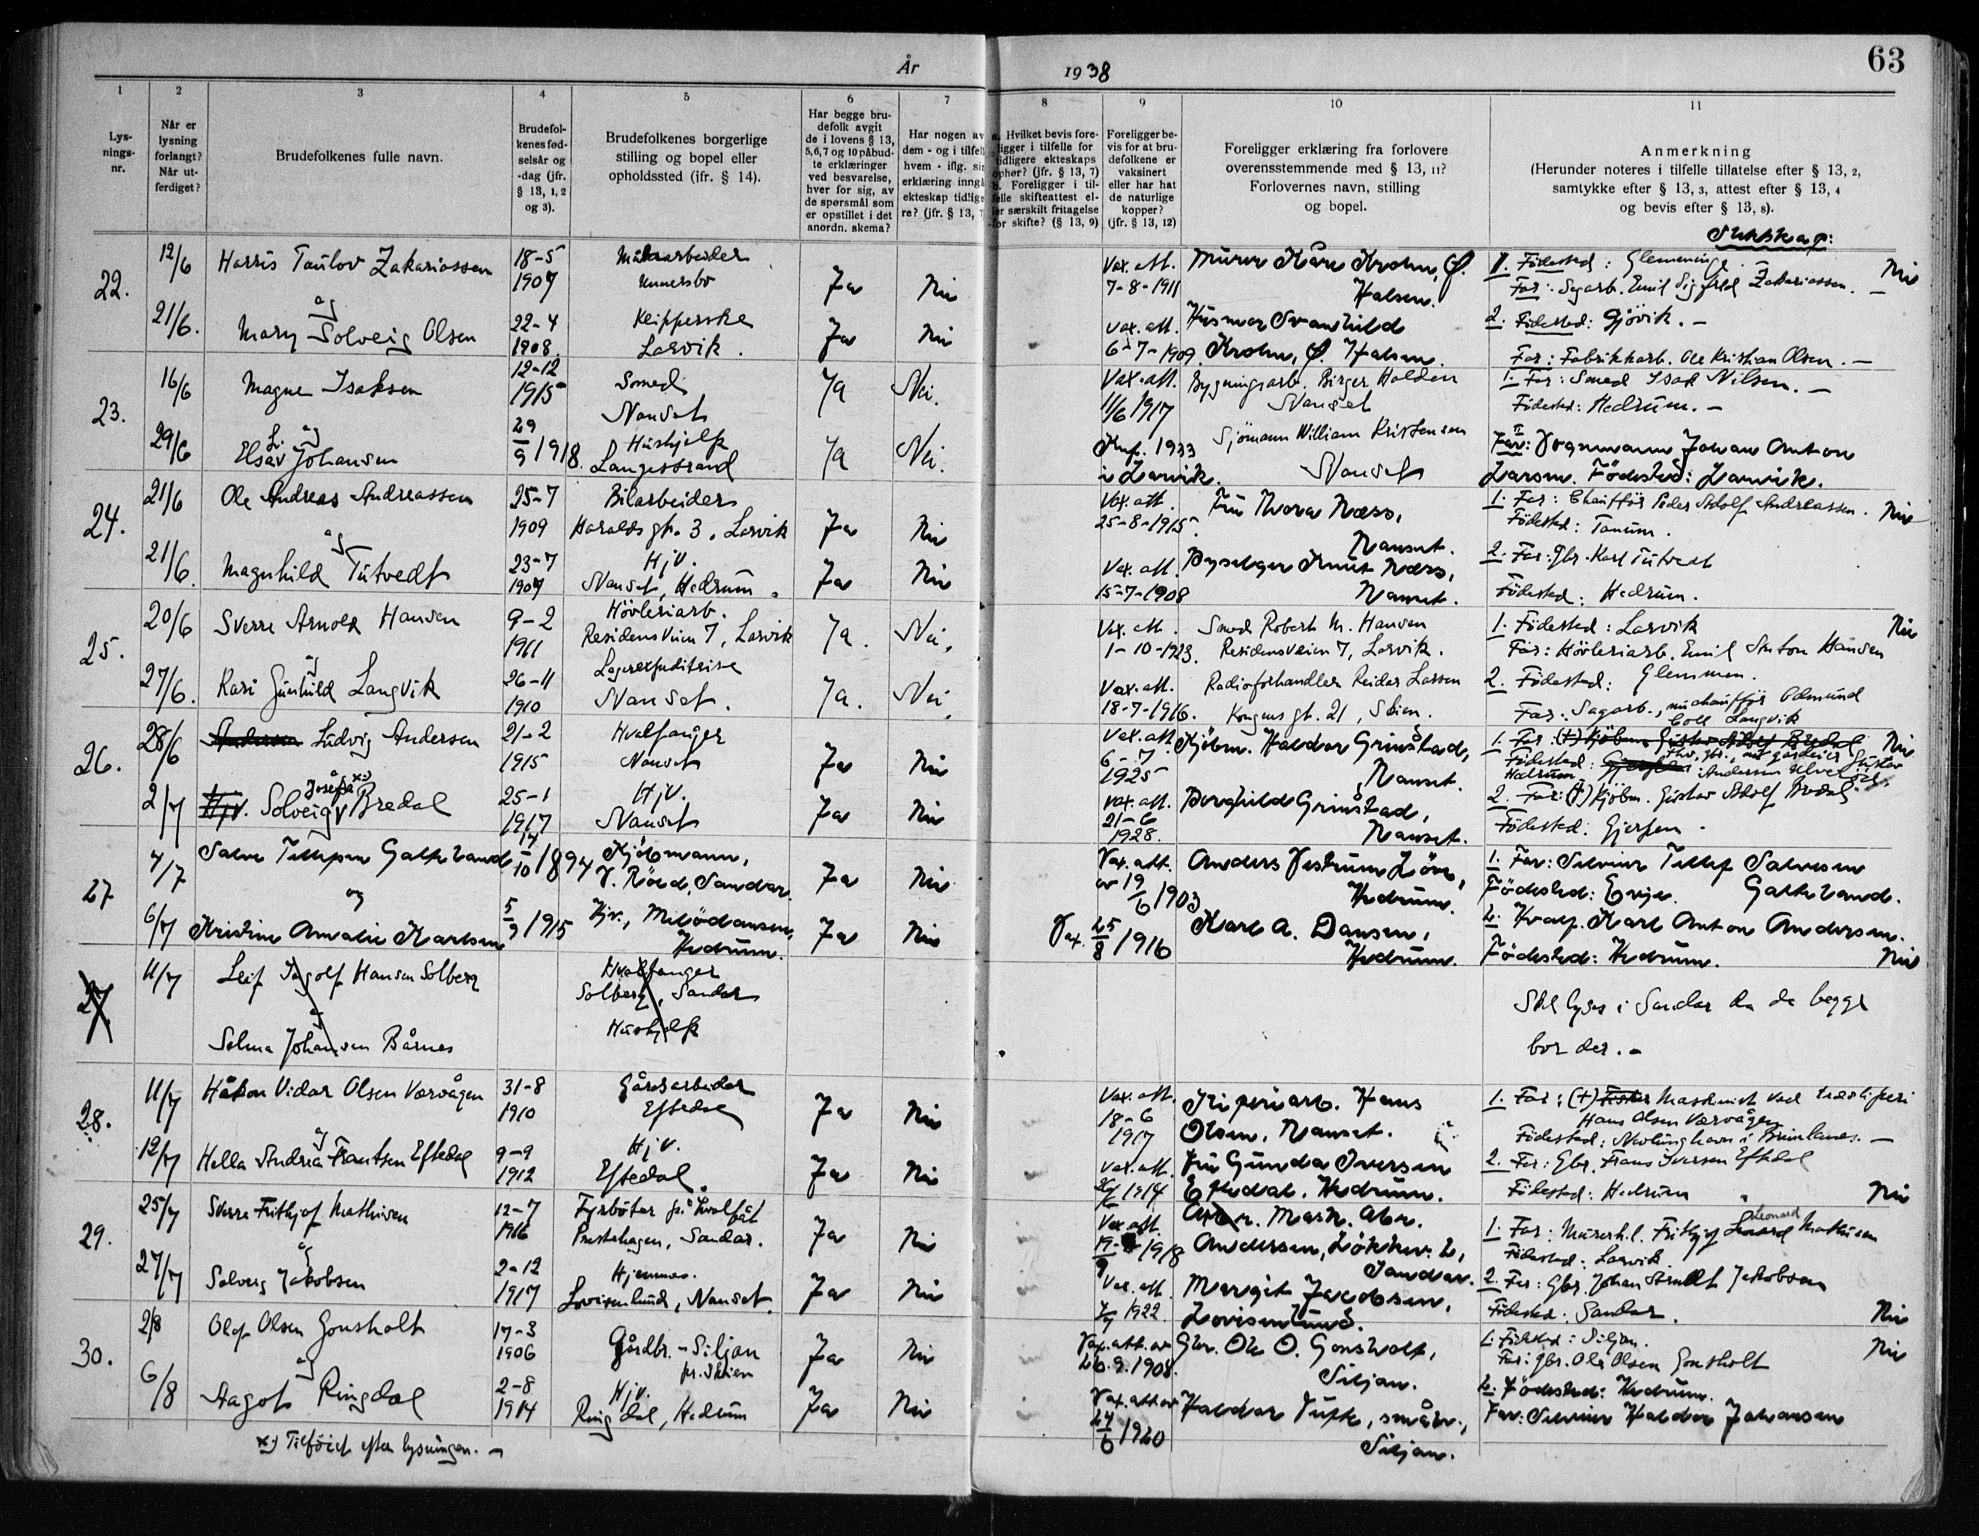 63
År 1938
1
2
3
4
5
6
7
8
9
10
11
Lysnings-nr.
Når er lysning forlangt? Når utferdiget?
Brudefolkenes fulle navn.
Brudefolkenes fødselsår og -dag (jfr. § 13, 1, 2 og 3).
Brudefolkenes borgerlige stilling og bopel eller opholdssted (jfr. § 14).
Har begge brudefolk avgit de i lovens § 13, 5, 6, 7 og 10 påbudte erklæringer ved besvarelse, hver for sig, av de spørsmål som er opstillet i det anordn. skema?
Har nogen av dem - og i tilfelle hvem - iflg. sin erklæring inngå ekteskap tidligere? (jfr. § 13, 7
Hvilket bevis foreligger i tilfelle for tidligere ekteskaps ophør? (jfr. § 13, 7) Foreligger i tilfelle skifteattest eller særskilt fritagelse for skifte? (§ 13, 9)
Foreligger bevis for at brudefolkene er vaksinert eller har hat de naturlige kopper? (jfr. § 13, 12)
Foreligger erklæring fra forlovere overensstemmende med § 13, 11? Forlovernes navn, stilling og bopel.
Anmerkning
(Herunder noteres i tilfelle tillatelse efter § 13, 2, samtykke efter § 13, 3, attest efter § 13, 4 og bevis efter § 13, 8).
22.
12/6
Harris Taulov Zakariassen
18-5
1907
Ja
Nei
Vax. att.
7-8-1911
Murer Kåre Krohn, Ø.
Halsen.
1. Fødested: Glemminge
Far: Sagarb. Emil Sigfred Zakariassen. —
Nei
og
21/6.
Mary Solveig Olsen
22-4
1908.
Larvik.
Ja
Nei
Vax. att.
6-7-1909.
Husmor Svanhild
Krohn, Ø. Halsen.
2. Fødested: Gjövik. —
Far: Fabrikkarb. Ole Kristian Olsen. —
23.
16/6
Magne Isaksen
12-12
1915
Smed
Nanset
Ja
Nei.
Vax. att.
11/6 1917
Bygningsarb. Birger Halden
Nanset
1. Far: Smed Isak Nilsen. —
Födested: Hedrum. —
og
29/6
Elsa Li v Johansen
29/9 1918.
Hushjelp
Langestrand
Ja
Nei.
1933
i Larvik.
Sjömann William Kristensen
Nanset
Far: Vognmann Johan Anton
Larsen. Födested: Larvik.
24.
21/6
Ole Andreas Andreassen
25-7
1909
Bilarbeider
Haralds gt. 3, Larvik
Ja
Nei
Vax. att.
25-8-1915.
Fru Thora Næss,
Nanset.
1. Far: Chauffør Peder Adolf Andreassen.
Födested: Tanum.
Nei
og
21/6.
Magnhild Tutvedt
23-7
1907
Hjv.
Nanset, Hedrum.
Ja
Nei
Vax. att.
15-7-1908
Knut Næss,
Nanset.
2. Far: Gbr. Karl Tutvedt
Födested: Hedrum.
25.
20/6
Sverre Arnold Hansen
9-2
1911
Hövleriarb.
Residensveien 7, Larvik
Ja.
Nei.
Vax. att.
1-10-1923.
Smed Robert M. Hansen
Residensveien 7, Larvik.
1. Födested: Larvik
Far: Hövleriarb. Emil Anton Hansen
Nei
og
27/6.
Kari Gunhild Langvik
26-11
1910
Lagerexpeditrise
Nanset.
Ja.
Nei.
Vax. att.
18-7-1916.
Radioforhandler Reidar Larsen
Kongens gt. 21, Skien.
2. Födested: Glemmen.
Far: Sagarb., nu chauffør Edmund
Langvik
26.
28/6
Ludvig Andersen
21-2
1915
Hvalfanger
Nanset
Ja
Nei
Vax. att.
6-7
1925
Kjöbm. Haldor Grinstad,
Nanset.
Födested:
Hedrum.
Nei
2/7
Hjv. Solveig Josefa x) Bredal
25-1
1917
Hjv.
Nanset
Ja
Nei
Vax. att.
21-6
1928.
Borghild Grinstad,
Nanset.
2. Far: (†) Kjöbm. Gustav Adolf Bredal.
Födested: Gjerpen.
27
4/7
14/10 1894
Kjöbmann,
Sandar.
Ja
Nei
Vax. att.
av 19/6 1903
Hedrum.
1. Far:
Födested: Evje.
og
6/7
Kristine Amalie Karlsen
5/9 1915
Hjv.,
Hedrum.
Ja
Nei
Vax. 25/8 1916
Karl A. Dansen,
Hedrum.
2. Hvalf. Karl Anton Andersen.
Födested: Hedrum.
Nei
27.
11/7
Leif Ingolf Hansen Solberg
Hvalfanger
Solberg, Sandar
og
Selma Johansen Bårnes
Hushjelp
Skal lyses i Sandar da de begge
bor der. —
28.
11/7
Håkon Vidar Olsen Værvågen
31-8
1910
Gårdsarbeider
Eftedal
Ja
Nei
Vax. att.
18-6
1917
Hans
Olsen, Nanset.
1. Far: (†) Maskinist ved tresliperi
Hans Olsen Værvågen
og
12/7
Hella Andrea Frantsen Eftedal
9-9
1912
Hjv.
Eftedal.
Ja
Nei
Vax. att.
1914
Fru Gunda Iversen
Eftedal. Hedrum.
2. Far: Gbr. Frans Iversen Eftedal
Födested: Hedrum
Nei
29.
25/7
Sverre Frithjof Mathisen
12-7
1916
Fyrböter på hvalbåt
Prestehagen, Sandar.
Ja
Nei
Vax. att.
1918
Andersen,
Sandar.
Leonard
1. Far: Frithjof Mathisen
Födested: Larvik.
og
27/7
Solveig Jakobsen
2-12
1917
Hjemmev.
Lovisenlund, Nanset.
Ja
Nei
Vax. att.
1922.
Margit Jacobsen,
Lovisenlund.
2. Far: Gbr. Johan Arndt Jakobsen
Födested: Sandar.
Nei
30.
2/8
Olaf Olsen Gonsholt
17-3
1906
Gårdbr. — Siljan
pr. Skien
Ja
Nei
Vax. att. av
26.9.1908.
Gbr. Ole O. Gonsholt,
Siljan.
1. Födested: Siljan.
Far: Gbr. Ole Olsen Gonsholt
Nei
og
6/8
Aagot Ringdal
2-8
1914
Hjv.
Ringdal, Hedrum
Ja
Nei
Vax. att. av
24/6 1920
Haldor Tufte,
Siljan.
2. Födested: Hedrum.
Far: Haldor Johansen
x) Tilföiet efter lysningen. —